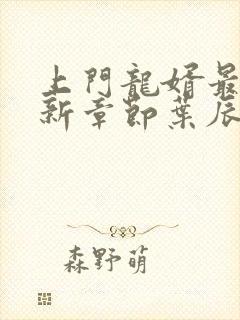 上門龍婿最
新章節葉辰
森野萌